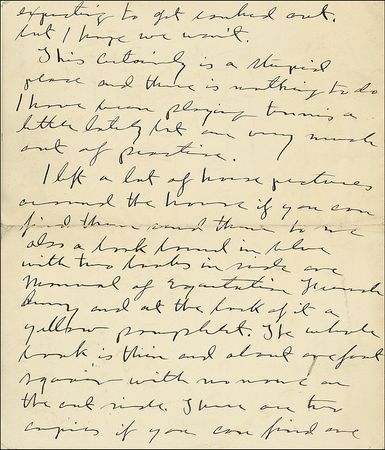 expecting to get ranked out.
but I hope we won't.
This certainly is a stupid
place and there is nothing to do
I have been playing tennis a
little lately but am very much
out of practice.
I left a lot of horse pictures
around the house if you can
find them send them to me
also a book bound in blue
with two books in side one
Manual of Equitation French
Army and at the back of it a
yellow pamphlet. The whole
book is thin and about one foot
square with no name on
the out side. There are two
copies if you can find one